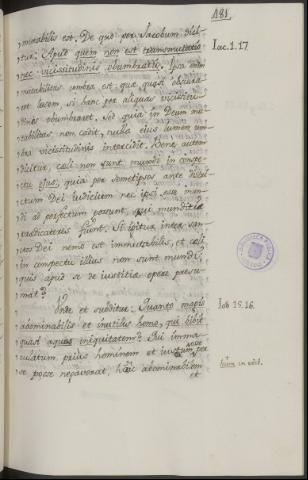 181.
„ mutabilis est. De quo per Jacobum dici-
„ tur: Apud quem non est transmutatio
„ nec vicissitudinis obumbratio. Ipsa enim
„ mutabilitas umbra est, quæ quasi obscura-
„ ret lucem, si hanc per aliquas vicissitu-
„ dines obumbraret. Sed quia in Deum mu-
„ tabilitas non cadit, nulla eius lumen um-
„ bra vicissitudinis intercidit. Bene autem
„ dicitur, cœli non sunt mundi in conspe-
„ ctu ejus, quia per semetipsos ante distri-
„ ctum Dei iudicium nec ipsi esse mun-
„ di ad perfectum possunt, qui munditiæ
„ prædicatores fiunt. Si igitur inter san-
„ ctos Dei nemo est immutabilis, et cœli
„ in conspectu illius non sunt mundi,
„ quis apud se de iustitiæ opere præsu-
„ mat?
„ Unde et subditur: Quanto magis
„ abominabilis et inutilis homo, qui bibit
„ quasi aquas iniquitatem? Qui imma-
„ culatum prius hominem et iustum
„ se posse negaverat, hunc abominabilem
et
Iac. 1. 17.
Iob 15. 16.